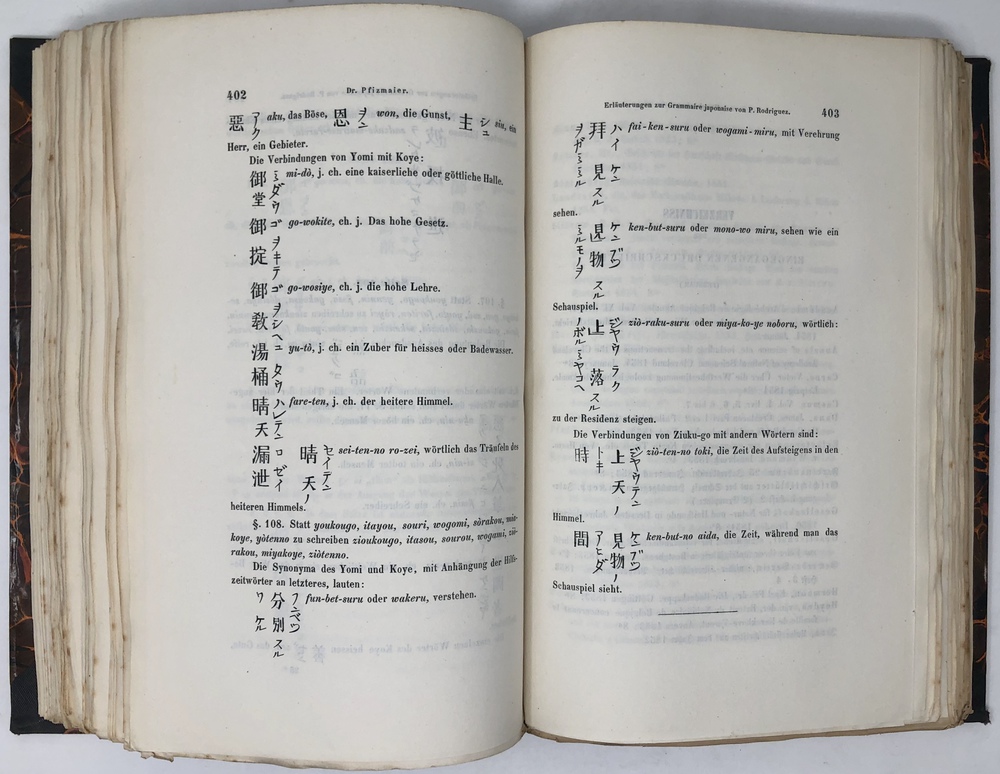 402 Dr. Pfizmaier.
惡 アク aku, das Böse, 恩 ヲン won, die Gunst, 主 シユ siu, ein
Herr, ein Gebieter.
Die Verbindungen von Yomi mit Koye:
御堂 ミダウ mi-dò, j. ch. eine kaiserliche oder göttliche Halle.
御掟 ゴヲキテ go-wokite, ch. j. Das hohe Gesetz.
御教 ゴヲシヘユ go-wosiye, ch. j. die hohe Lehre.
湯桶 タウ yu-tò, j. ch. ein Zuber für heisses oder Badewasser.
晴天 ハレテン fare-ten, j. ch. der heitere Himmel.
漏泄 ロゼイ 晴天ノ セイテン sei-ten-no ro-zei, wörtlich das Träufeln des
heiteren Himmels.
§. 108. Statt youkougo, itayou, souri, wogomi, sòrakou, mia-
koye, yòtenno zu schreiben zioukougo, itasou, sourou, wogami, ziò-
rakou, miyakoye, ziòtenno.
Die Synonyma des Yomi und Koye, mit Anhängung der Hilfs-
zeitwörter an letzteres, lauten:
ワケル 分別スル フンベツ fun-bet-suru oder wakeru, verstehen.
Erläuterungen zur Grammaire japonaise von P. Rodriguez. 403
ヲガミミル 拜見スル ハイケン fai-ken-suru oder wogami-miru, mit Verehrung
sehen.
ミルモノヲ 見物スル ケンブツ ken-but-suru oder mono-wo miru, sehen wie ein
Schauspiel.
ノボルミヤコヘ 上落スル ジヤウラク ziò-raku-suru oder miya-ko-ye noboru, wörtlich:
zu der Residenz steigen.
Die Verbindungen von Ziuku-go mit andern Wörtern sind:
時 トキ 上天ノ ジヤウテン ziò-ten-no toki, die Zeit des Aufsteigens in den
Himmel.
間 アヒダ 見物ノ ケンブツ ken-but-no aida, die Zeit, während man das
Schauspiel sieht.